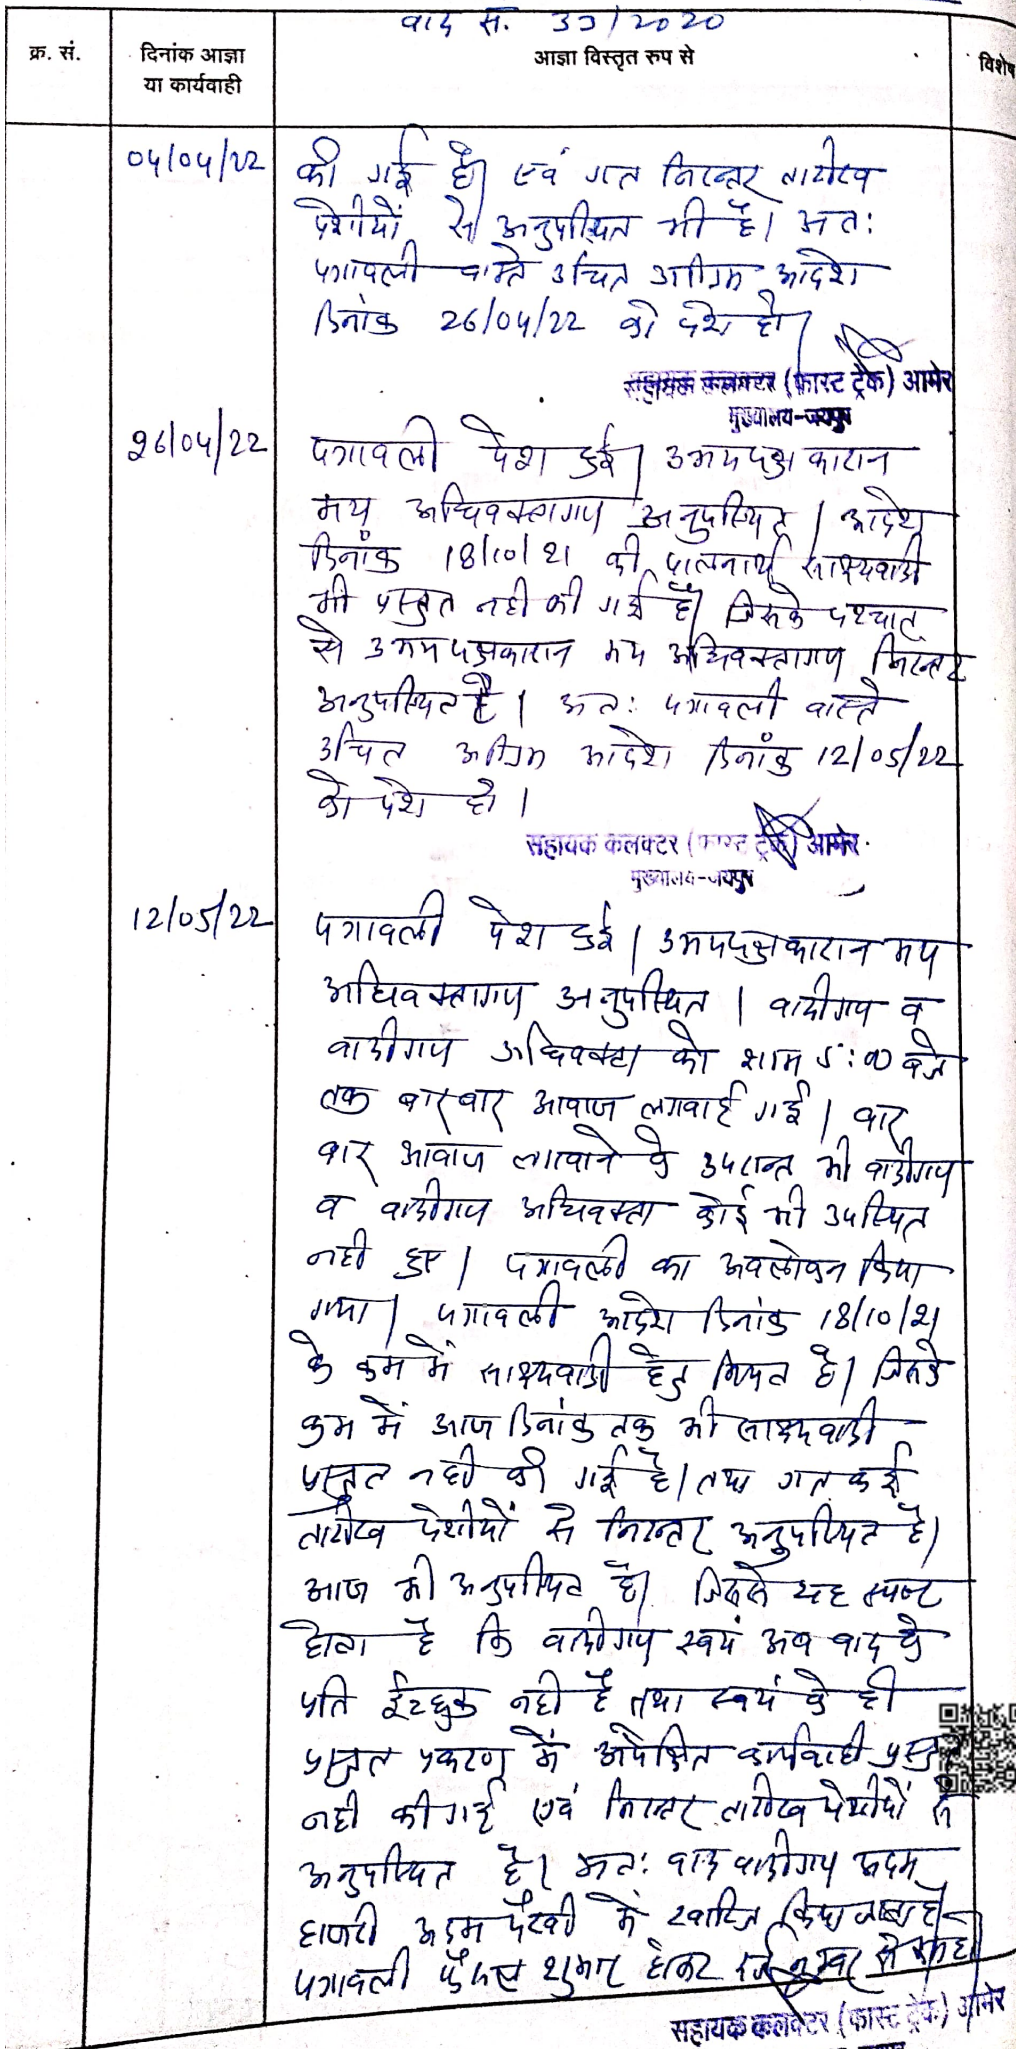 वाद सं. 33/2020
क्र. सं. दिनांक आज्ञा आज्ञा विस्तृत रुप से विशेष
या कार्यवाही
04/04/22 की गई है। एवं गत निरन्तर तारीख
पेशीयों से अनुपस्थित भी है। अतः
पत्रावली वास्ते उचित अग्रिम आदेश
दिनांक 26/04/22 को पेश हो।
सहायक कलक्टर (फास्ट ट्रेक) आमेर
मुख्यालय-जयपुर
26/04/22 पत्रावली पेश हुई। उभयपक्षकारान
मय अधिवक्तागण अनुपस्थित। आदेश
दिनांक 18/10/21 की पालनार्थ साक्ष्यवादी
भी प्रस्तुत नही की गई है। जिसके पश्चात्
से उभयपक्षकारान मय अधिवक्तागण निरन्तर
अनुपस्थित है। अतः पत्रावली वास्ते
उचित अग्रिम आदेश दिनांक 12/05/22
को पेश हो।
सहायक कलक्टर (फास्ट ट्रेक) आमेर
मुख्यालय-जयपुर
12/05/22 पत्रावली पेश हुई। उभयपक्षकारान मय
अधिवक्तागण अनुपस्थित। वादीगण व
वादीगण अधिवक्ता को शाम 5:00 बजे
तक बार बार आवाज लगवाई गई। बार
बार आवाज लगवाने के उपरान्त भी वादीगण
व वादीगण अधिवक्ता कोई भी उपस्थित
नही हुए। पत्रावली का अवलोकन किया
गया। पत्रावली आदेश दिनांक 18/10/21
के क्रम में साक्ष्यवादी हेतु नियत है। जिसके
क्रम में आज दिनांक तक भी साक्ष्यवादी
प्रस्तुत नही की गई है। तथा गत कई
तारीख पेशीयों से निरन्तर अनुपस्थित है।
आज भी अनुपस्थित है। जिससे यह स्पष्ट
होता है कि वादीगण स्वयं अब वाद के
प्रति ईच्छुक नही है तथा स्वयं के ही
प्रस्तुत प्रकरण में अपेक्षित कार्यवाही प्रस्तुत
नही की गई एवं निरन्तर तारीख पेशीयों से
अनुपस्थित है। अतः वाद वादीगण अदम
हाजरी अदम पैरवी में खारिज किया जाता है
पत्रावली फैसल शुमार होकर नम्बर से कम हो
सहायक कलक्टर (फास्ट ट्रेक) आमेर